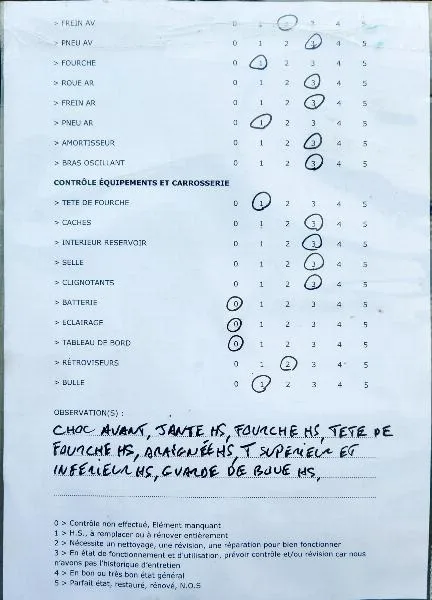 > FREIN AV 0 1 2 3 4 5
> PNEU AV 0 1 2 3 4 5
> FOURCHE 0 1 2 3 4 5
> ROUE AR 0 1 2 3 4 5
> FREIN AR 0 1 2 3 4 5
> PNEU AR 0 1 2 3 4 5
> AMORTISSEUR 0 1 2 3 4 5
> BRAS OSCILLANT 0 1 2 3 4 5
CONTRÔLE ÉQUIPEMENTS ET CARROSSERIE
> TETE DE FOURCHE 0 1 2 3 4 5
> CACHES 0 1 2 3 4 5
> INTERIEUR RESERVOIR 0 1 2 3 4 5
> SELLE 0 1 2 3 4 5
> CLIGNOTANTS 0 1 2 3 4 5
> BATTERIE 0 1 2 3 4 5
> ECLAIRAGE 0 1 2 3 4 5
> TABLEAU DE BORD 0 1 2 3 4 5
> RÉTROVISEURS 0 1 2 3 4 5
> BULLE 0 1 2 3 4 5
OBSERVATION(S) :
CHOC AVANT, JANTE HS, FOURCHE HS, TETE DE
FOURCHE HS, ARAIGNÉE HS, T SUPERIEUR ET
INFERIEUR HS, GUARDE DE BOUE HS,
0 > Contrôle non effectué, Elément manquant
1 > H.S., à remplacer ou à rénover entièrement
2 > Nécessite un nettoyage, une révision, une réparation pour bien fonctionner
3 > En état de fonctionnement et d'utilisation, prévoir contrôle et/ou révision car nous
n'avons pas l'historique d'entretien
4 > En bon ou très bon état général
5 > Parfait état, restauré, rénové, N.O.S